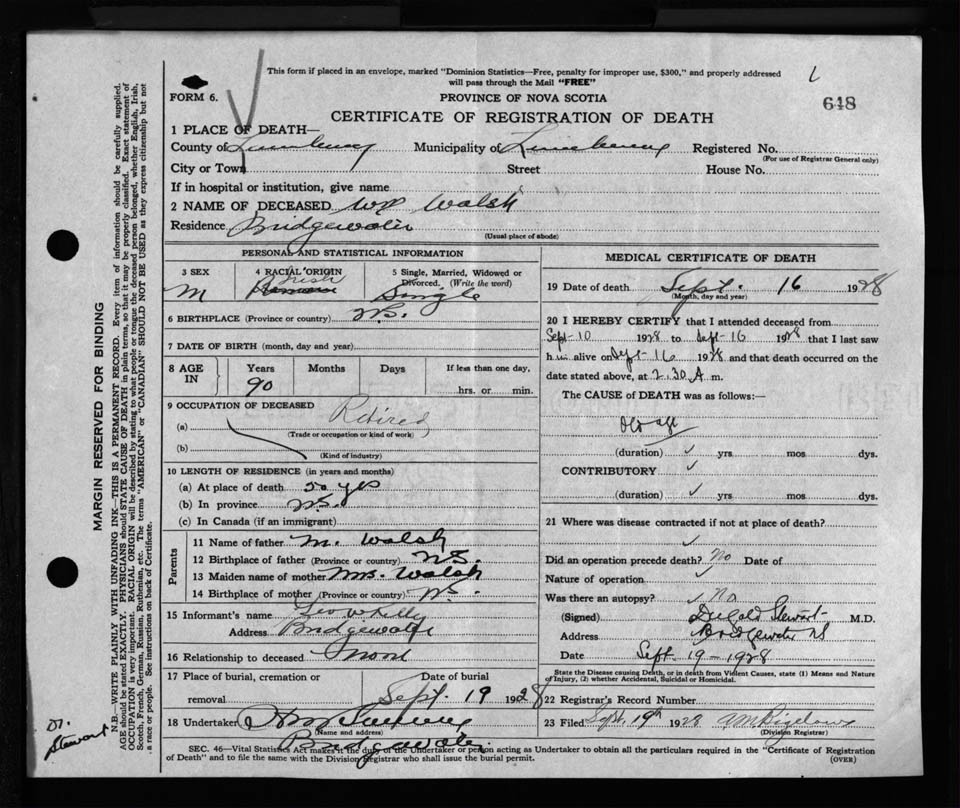 This form if placed in an envelope, marked "Dominion Statistics—Free, penalty for improper use, $300," and properly addressed
will pass through the Mail "FREE"
FORM 6.
PROVINCE OF NOVA SCOTIA
648
CERTIFICATE OF REGISTRATION OF DEATH
1 PLACE OF DEATH—
County of Lunenburg Municipality of Lunenburg Registered No.
(For use of Registrar General only)
City or Town Street House No.
If in hospital or institution, give name
2 NAME OF DECEASED Wm Walsh
Residence Bridgewater
(Usual place of abode)
PERSONAL AND STATISTICAL INFORMATION
3 SEX
M
4 RACIAL ORIGIN
Irish
5 Single, Married, Widowed or
Divorced. (Write the word)
Single
6 BIRTHPLACE (Province or country) N.S.
7 DATE OF BIRTH (month, day and year)
8 AGE
IN
Years Months Days If less than one day,
90
hrs. or min.
9 OCCUPATION OF DECEASED
(a) Retired
(Trade or occupation or kind of work)
(b)
(Kind of industry)
10 LENGTH OF RESIDENCE (in years and months)
(a) At place of death 50 yrs
(b) In province N.S.
(c) In Canada (if an immigrant)
Parents
11 Name of father M. Walsh
12 Birthplace of father (Province or country) N.S.
13 Maiden name of mother Mrs. Walsh
14 Birthplace of mother (Province or country) N.S.
15 Informant's name Geo W Kelly
Address Bridgewater
16 Relationship to deceased None
17 Place of burial, cremation or Date of burial
removal Sept. 19 1928
18 Undertaker
(Name and address)
Bridgewater
MEDICAL CERTIFICATE OF DEATH
19 Date of death Sept. 16 1928
(Month, day and year)
20 I HEREBY CERTIFY that I attended deceased from
Sept-10 1928 to Sept-16 1928 that I last saw
him alive on Sept-16 1928 and that death occurred on the
date stated above, at 2.30 A m.
The CAUSE of DEATH was as follows:—
Old age
(duration) ✓ yrs mos dys.
CONTRIBUTORY ✓
(duration) ✓ yrs mos dys.
21 Where was disease contracted if not at place of death?
✓
Did an operation precede death? No Date of
Nature of operation ✓
Was there an autopsy? ✓ No
(Signed) Dugald Stewart M.D.
Address Bridgewater NS
Date Sept. 19-1928
State the Disease causing Death, or in death from Violent Causes, state (1) Means and Nature
of Injury, (2) whether Accidental, Suicidal or Homicidal.
22 Registrar's Record Number
23 Filed Sept. 19th 1928 Bigelow
(Division Registrar)
SEC. 46—Vital Statistics Act makes it the duty of the Undertaker or person acting as Undertaker to obtain all the particulars required in the "Certificate of Registration
of Death" and to file the same with the Division Registrar who shall issue the burial permit.
(OVER)
MARGIN RESERVED FOR BINDING
N.B.—WRITE PLAINLY WITH UNFADING INK—THIS IS A PERMANENT RECORD. Every item of information should be carefully supplied.
AGE should be stated EXACTLY. PHYSICIANS should STATE CAUSE OF DEATH in plain terms, so that it may be properly classified. Exact statement of
OCCUPATION is very important. RACIAL ORIGIN will be described by stating to what people or tongue the deceased person belonged, whether English, Irish,
Scotch, French, German, Russian, Ruthenian, etc. The terms "AMERICAN" or "CANADIAN" SHOULD NOT BE USED as they express citizenship but not
a race or people. See instructions on back of Certificate.
Dr.
Stewart